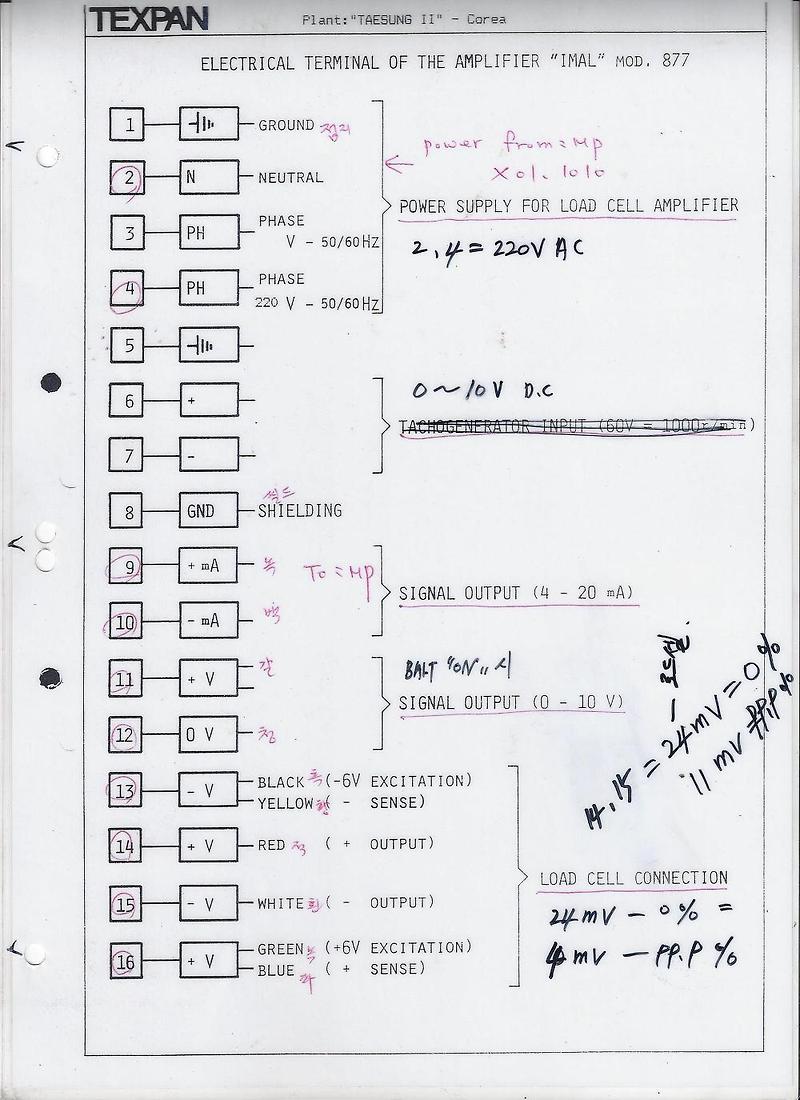 TEXPAN
Plant:"TAESUNG II" - Corea
ELECTRICAL TERMINAL OF THE AMPLIFIER "IMAL" MOD. 877
1 GROUND 접지
power from = Mp
X01.1010
2 N NEUTRAL
POWER SUPPLY FOR LOAD CELL AMPLIFIER
3 PH PHASE
V - 50/60HZ
2,4 = 220V AC
4 PH PHASE
220 V - 50/60HZ
5
6 +
0 ~ 10V D.C
TACHOGENERATOR INPUT (60V = 1000r/min)
7 -
쉴드
8 GND SHIELDING
9 + mA 녹
To = MP
SIGNAL OUTPUT (4 - 20 mA)
10 - mA 백
11 + V 갈
BALT "ON" 시
SIGNAL OUTPUT (0 - 10 V)
12 0 V 청
14,15 = 24mV = 0%
11 mV
13 - V BLACK 흑 (-6V EXCITATION)
YELLOW 황 ( - SENSE)
14 + V RED 적 ( + OUTPUT)
LOAD CELL CONNECTION
15 - V WHITE 흰 ( - OUTPUT)
24mV - 0% =
16 + V GREEN 녹 (+6V EXCITATION)
BLUE ( + SENSE)
mV - %